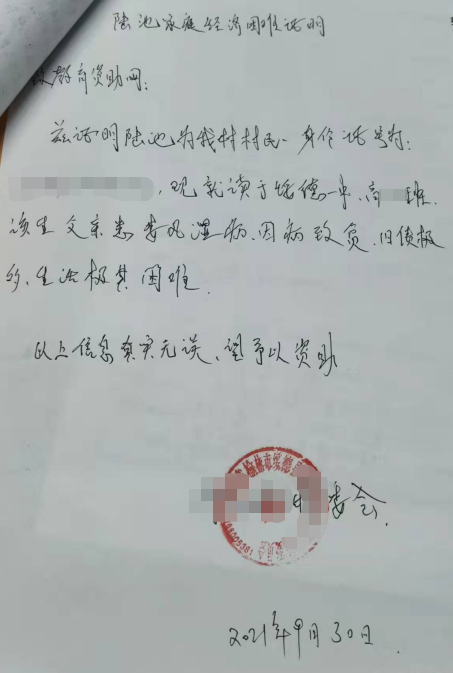 陆池家庭经济困难证明
教育资助网：
兹证明陆池为我村村民，身份证号为：
，现就读于绥德一中、高 班.
该生父亲患类风湿病、因病致贫，旧债极
多、生活极其困难.
以上信息真实无误、望予以资助
榆林市绥德县
村委会.
2021年9月30日.